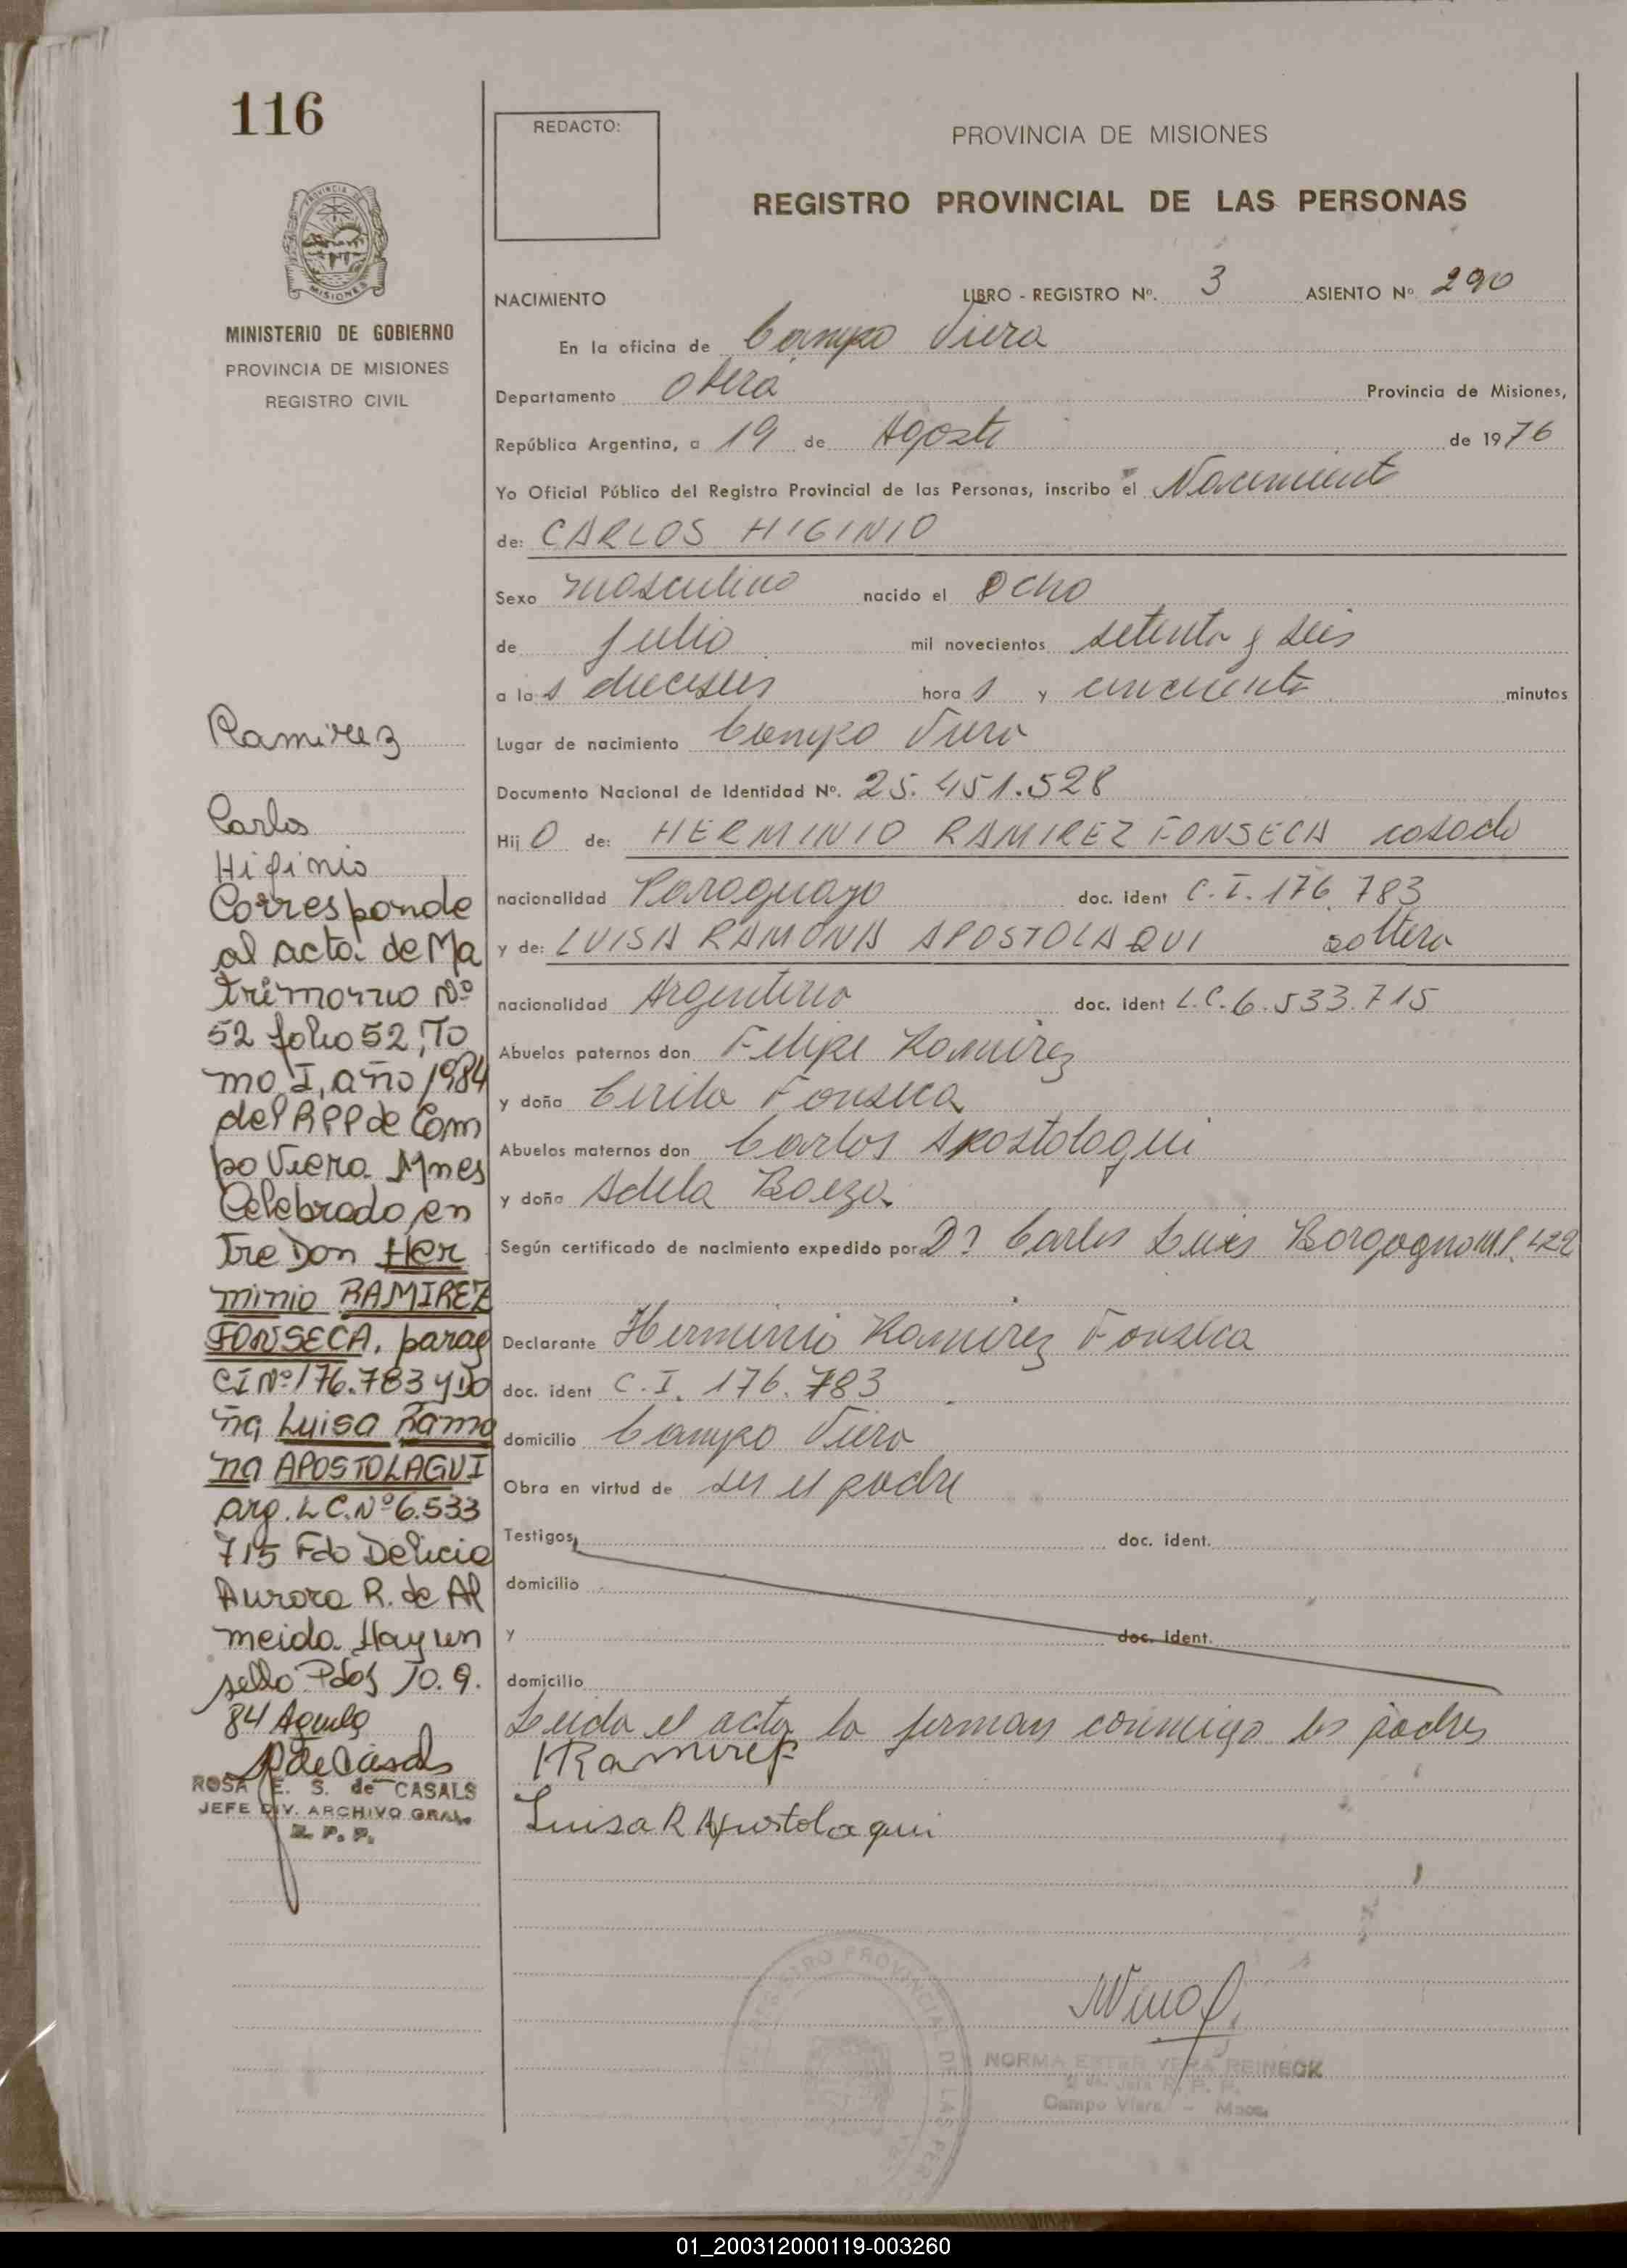 116
REDACTO:
PROVINCIA DE MISIONES
REGISTRO PROVINCIAL DE LAS PERSONAS
PROVINCIA DE
MISIONES
MINISTERIO DE GOBIERNO
PROVINCIA DE MISIONES
REGISTRO CIVIL
NACIMIENTO LIBRO - REGISTRO Nº. 3 ASIENTO Nº 290
En la oficina de Campo Viera
Departamento Oberá Provincia de Misiones,
República Argentina, a 19 de Agosto de 1976
Yo Oficial Público del Registro Provincial de las Personas, inscribo el Nacimiento
de: CARLOS HIGINIO
Sexo masculino nacido el ocho
de julio mil novecientos setenta y seis
a las dieciseis horas y cincuenta minutos
Lugar de nacimiento Campo Viera
Documento Nacional de Identidad Nº. 25.451.528
Hijo de: HERMINIO RAMIREZ FONSECA casado
nacionalidad Paraguayo doc. ident C.I. 176.783
y de: LUISA RAMONA APOSTOLAQUI soltera
nacionalidad Argentina doc. ident L.C. 6.533.715
Abuelos paternos don Felipe Ramirez
y doña Cirila Fonseca
Abuelos maternos don Carlos Apostolaqui
y doña Adela Baeza
Según certificado de nacimiento expedido por Dr Carlos Luis Borgogno M.P. 422
Declarante Herminio Ramirez Fonseca
doc. ident C.I. 176.783
domicilio Campo Viera
Obra en virtud de ser el padre
Testigos doc. ident.
domicilio
y doc. ident.
domicilio
Leida el acta la firman conmigo los padres
HRamirez
Luisa R Apostolaqui
Ramirez
Carlos
Higinio
Corresponde
al acta de Ma
trimonio Nº
52 folio 52, To
mo I, año 1984
del RPP de Cam
po Viera Mnes
Celebrado en
tre Don Her
minio RAMIREZ
FONSECA, parag
CI Nº 176.783 y Do
ña Luisa Ramo
na APOSTOLAGUI
arg. L C. Nº 6.533
715 Fdo Delicia
Aurora R. de Al
meida. Hay un
sello Pdas 10.9.
84
ROSA E. S. de CASALS
JEFE DIV. ARCHIVO GRAL.
R. P. P.
REGISTRO PROVINCIAL DE LAS PER
NORMA ESTER VERA REINECK
Campo Viera - Mnes.
01_200312000119-003260